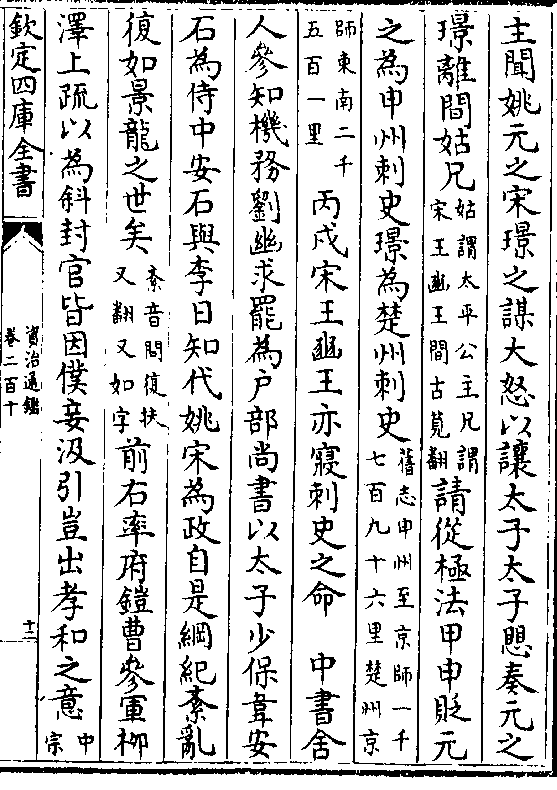 主聞姚元之宋璟之謀大怒以讓太子太子懼奏元之
璟離間姑兄姑謂太平公主兄謂宋王豳王間古莧翻請從極法甲申貶元
之為申州刺史璟為楚州刺史舊志申州至京師一千七百九十六里楚州京
師東南二千五百一里丙戌宋王豳王亦寢刺史之命　中書舍
人參知機務劉幽求罷為户部尚書以太子少保韋安
石為侍中安石與李日知代姚宋為政自是綱紀紊亂
復如景龍之世矣紊音問復扶又翻又如字前右率府鎧曹參軍柳
澤上疏以為斜封官皆因僕妾汲引豈出孝和之意中宗
欽定四庫全書
資治通鑑
卷二百十
十二